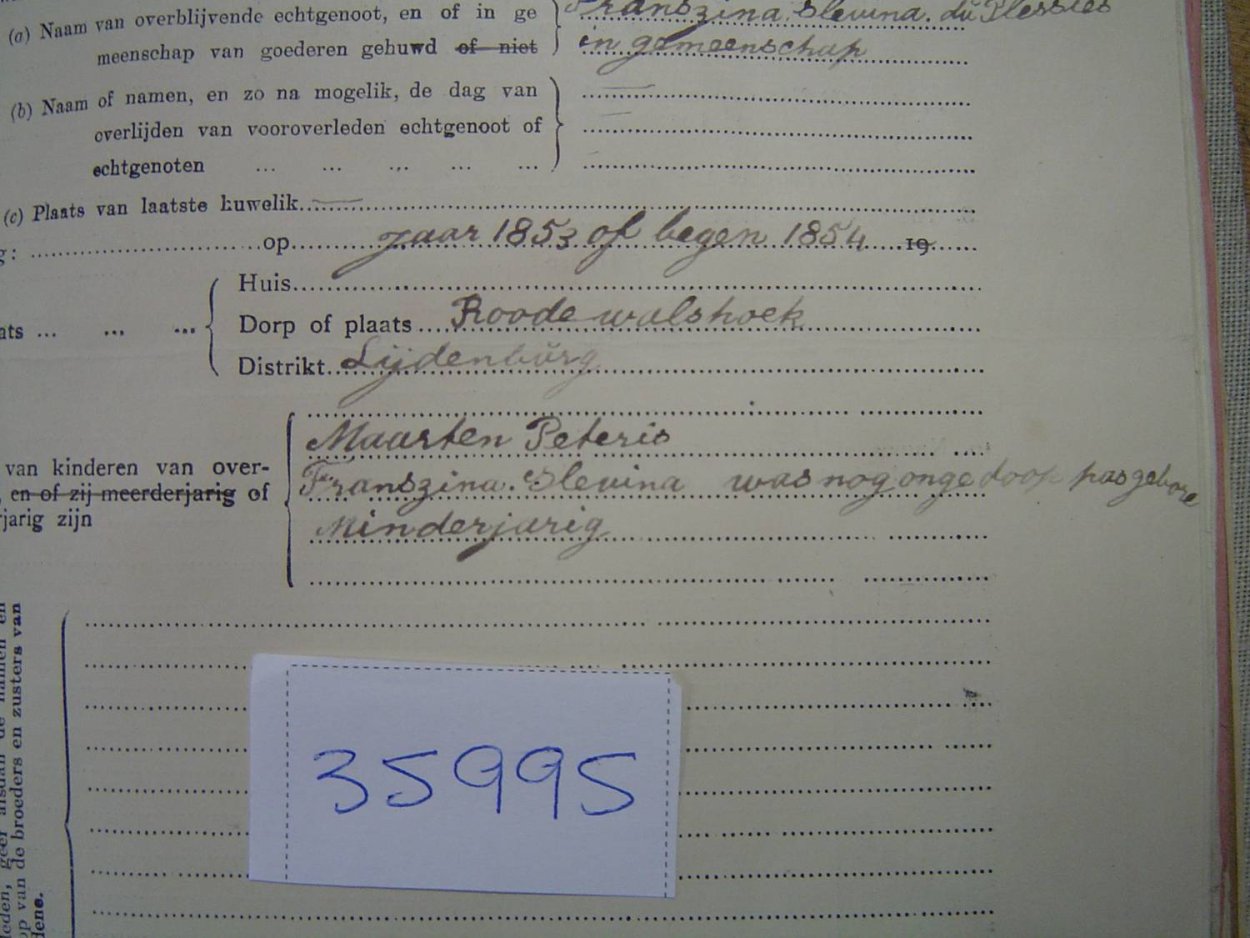 (a) Naam van overblijvende echtgenoot, en of in ge Franszina. Slevina. du Plessies
meenschap van goederen gehuwd of niet in gemeenschap
(b) Naam of namen, en zo na mogelik, de dag van
overlijden van vooroverleden echtgenoot of
echtgenoten ... ... ... ... ...
(c) Plaats van laatste huwelik
g: op jaar 1853 of begen 1854 19
Huis
ats ... ... ... Dorp of plaats Roode walshoek
Distrikt Lijdenburg
Maarten Peteris
van kinderen van over- Franszina. Slevina was nog ongedoop pas gebore
, en of zij meerderjarig of
jarig zijn Minderjarig
op van de broeders en zusters van
dene.
35995